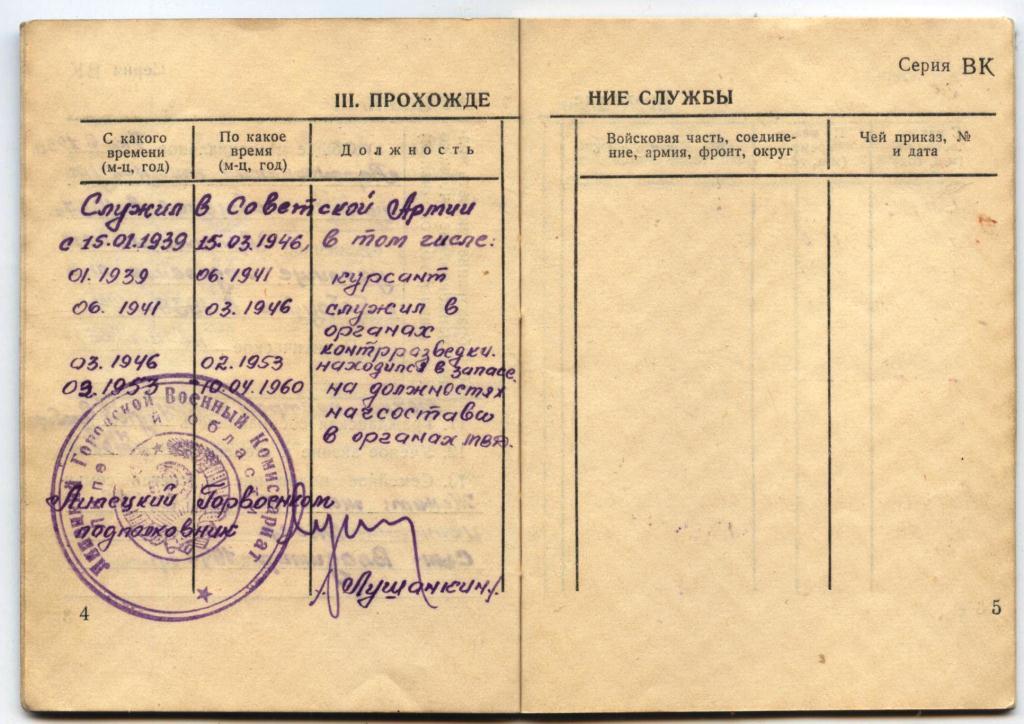 Серия ВК
III. ПРОХОЖДЕ НИЕ СЛУЖБЫ
С какого времени (м-ц, год)
По какое время (м-ц, год)
Должность
Войсковая часть, соединение, армия, фронт, округ
Чей приказ, № и дата
Служил в Советской Армии
с 15.01.1939 15.03.1946, в том числе:
01.1939 06.1941 курсант
06.1941 03.1946 служил в
органах
контрразведки.
03.1946 02.1953 находился в запасе.
02.1953 10.04.1960 на должностях
начсостава
в органах МВД.
Липецкий Горвоенком
подполковник
/Лушанкин/
Липецкий Городской Военный Комиссариат
Липецкой области
4
5